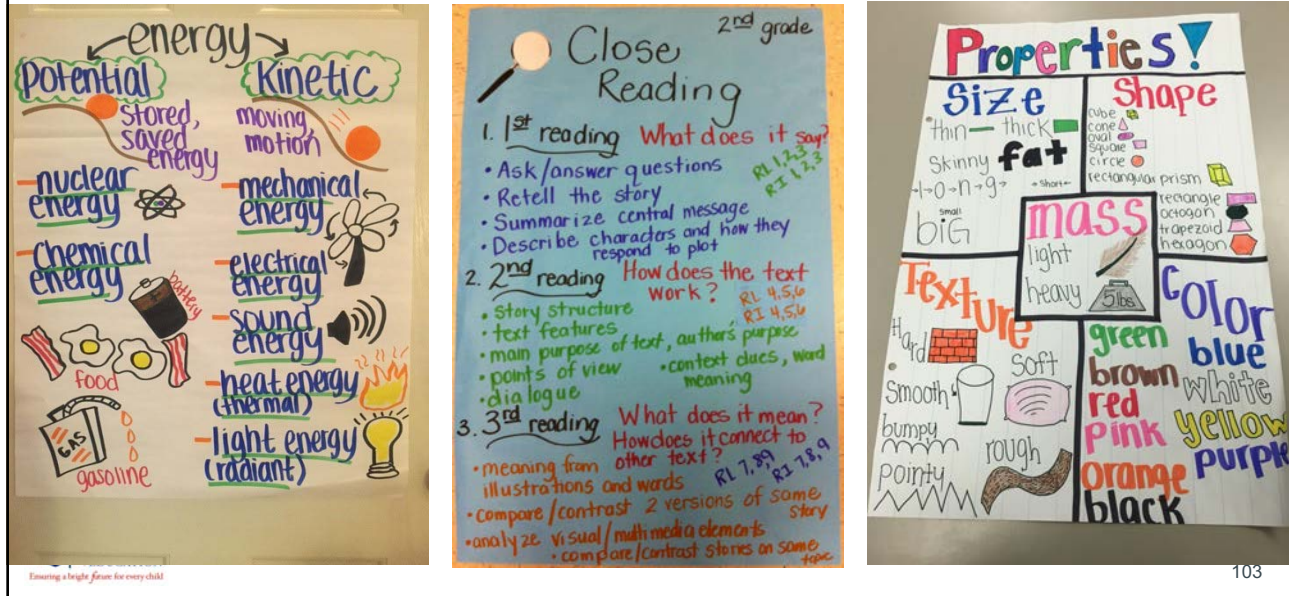 energy
Potential
stored,
saved
energy
nuclear
energy
Chemical
energy
battery
food
GAS
gasoline
Kinetic
moving
motion
mechanical
energy
electrical
energy
sound
energy
heat energy
(thermal)
light energy
(radiant)
2nd grade
Close
Reading
1. 1st reading What does it say?
• Ask/answer questions
RL 1,2,3
RI 1,2,3
• Retell the story
• Summarize central message
• Describe characters and how they
respond to plot
2. 2nd reading How does the text
work?
RL 4,5,6
RI 4,5,6
• story structure
• text features
• main purpose of text, author's purpose
• points of view
• context clues, word
meaning
• dialogue
3. 3rd reading What does it mean?
How does it connect to
other text?
RL 7,8,9
RI 7,8,9
• meaning from
illustrations and words
• compare/contrast 2 versions of same
story
• analyze visual/multimedia elements
• compare/contrast stories on same
topic
Properties!
Size
thin thick
Skinny fat
l-o-n-g
short
small
biG
Shape
cube
cone
oval
square
circle
rectangular prism
rectangle
octogon
trapezoid
hexagon
mass
light
heavy
5lbs
Texture
Hard
Soft
Smooth
bumpy
rough
pointy
Color
green
blue
brown
white
red
yellow
pink
purple
orange
black
Ensuring a bright future for every child
103